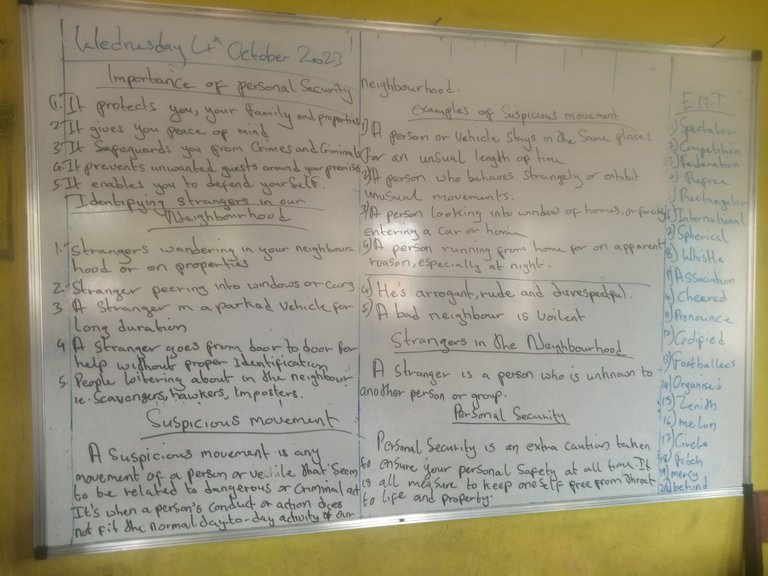 Wednesday 4th October 2023
Importance of personal Security
1. It protects you, your family and properties
2. It gives you peace of mind
3. It Safeguards you from Crimes and Criminals
4. It prevents unwanted guests around your premises
5. It enables you to defend yourself.
Identifying strangers in our
Neighbourhood
1. Strangers wandering in your neighbour
hood or on properties
2. Stranger peering into windows or cars
3 A Stranger in a parked Vehicle for
long duration
4 A Stranger goes from door to door for
help without proper Identification
5. People loitering about in the neighbour
ie. Scavengers, hawkers, Imposters.
Suspicious movement
A Suspicious movement is any
movement of a person or vehile that Seem
to be related to dangerous or Criminal act
It's when a person's Conduct or action does
not fit the normal day-to-day activity of our
neighbourhood.
Examples of Suspicious movement
1) A person or Vehicle Stays in the Same places
for an unusual length of time
2) A person who behaves Strangely or exhibit
unusual movements.
3) A person looking into window of homes, or forcibly
entering a car or home
4) A person running from home for on apparent
reason, especially at night.
4) He's arrogant, rude and disrespectful.
5) A bad neighbour is Voilent
Strangers in the Neighbourhood
A Stranger is a person who is unknown to
another person or group.
Personal Security
Personal Security is an extra caution taken
to ensure your personal Safety at all time. It
is all measure to keep oneself free from threat
to life and property.
E.M.T
1) Spectators
2) Competition
3) Federation
4) Refree
5) Rectangular
6) International
7) Spherical
8) Whistle
9) Association
10) Cheered
11) Pronounce
12) Codified
13) Footballers
14) Organised
15) Zenith
16) melon
17) Circle
18) Pitch
19) mercy
20) behind